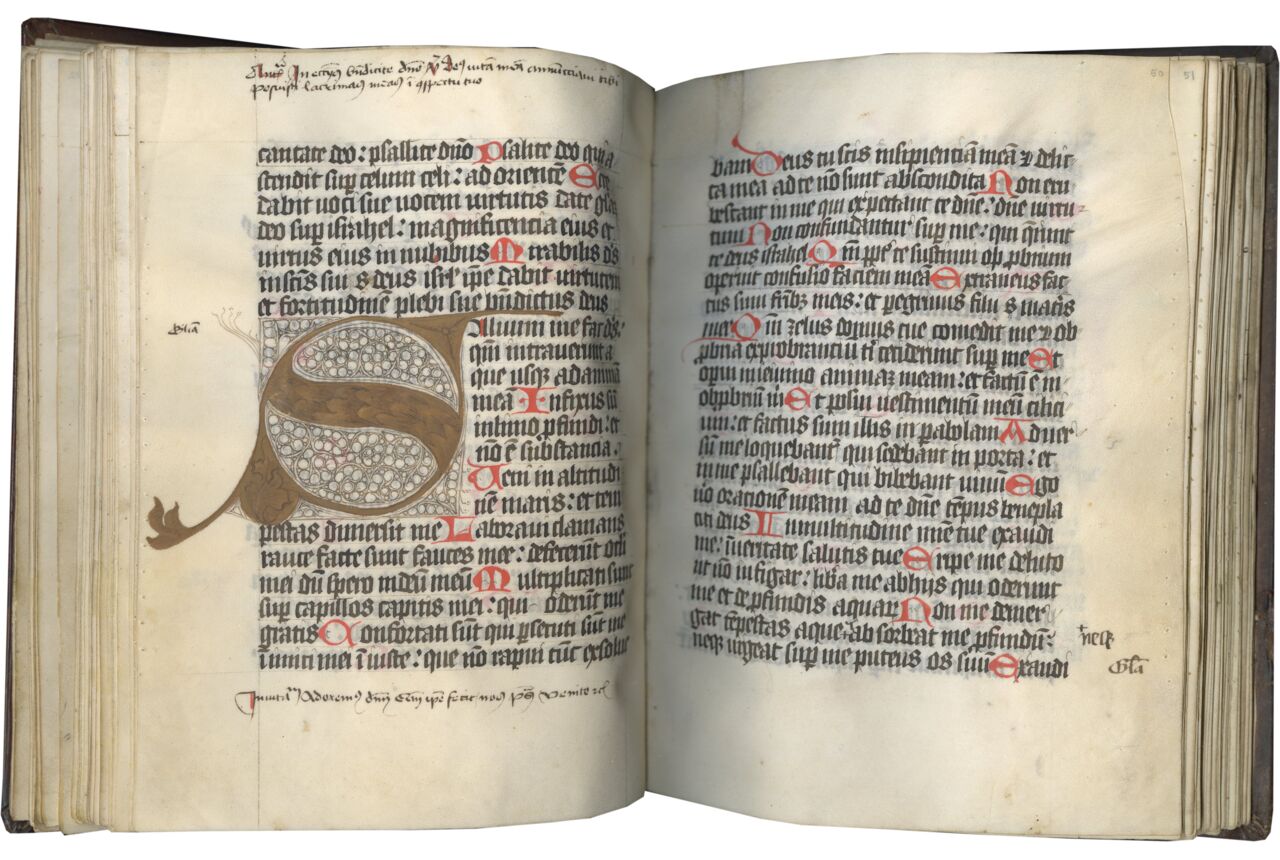 In ecclijs bndicite dno Deus vitā meā annunciavi tibi
Posuisti lacrimas meas ī cspectu tuo
cantate deo: psallite dno Psalite deo qui a
scendit sup celum celi: ad orientē Ecce
dabit voci sue vocem virtutis date glam
deo sup israhel: magnificencia eius et
virtus eius in nubibus Mirabilis ds
in scis suis deus isrl ipe dabit virtutem
et fortitudinē plebi sue bndictus deus
Salvum me fac ds:
qm intraverunt a
que usq ad animā
meā Infixus sū
in limo pfundi: et
nō ē substancia:
Veni in altitudi
nē maris: et tem
pestas dimersit me Laboravi clamans
rauce facte sunt fauces mee: defecerunt oculi
mei dū spero in deū meū Multiplicati sunt
sup capillos capitis mei: qui oderūt me
gratis Confortati sūt qui psecuti sūt me
inimici mei iniuste: que nō rapui tūc exsolve
Adoremus dnm ipe fecit nos ps Venite
50 51
bam Deus tu scis insipienciā meā et delic
ta mea ad te nō sunt abscondita Non eru
bescant in me qui expectant te dne: dne virtu
tum Non confundantur sup me: qui qrunt
te deus israhel Qm ppt te sustinui opprobrium
operuit confusio faciem meā Extraneus fac
tus sum fribz meis: et pegrinus filiis matris
mee Qm zelus domus tue comedit me et ob
pbria exprobranciū ti ceciderunt sup me Et
operui in ieiunio animaz meam: et factū ē in
obpbriū m Et posui vestimentū meū cilici
um: et factus sum illis in pabolam Adver
sū me loquebant qui sedebant in porta: et
in me psallebant qui bibebant vinū Ego
vo orationē meam ad te dne tēpus benepla
citi deus In multitudine mie tue exaudi
me: in veritate salutis tue Eripe me de luto
ut nō infigar: liba me ab hijs qui oderunt
me et de pfundis aquar Non me demer
gat tēpestas aque: ab sorbeat me pfundū:
neq urgeat sup me puteus os suū Exaudi
neq
Gla